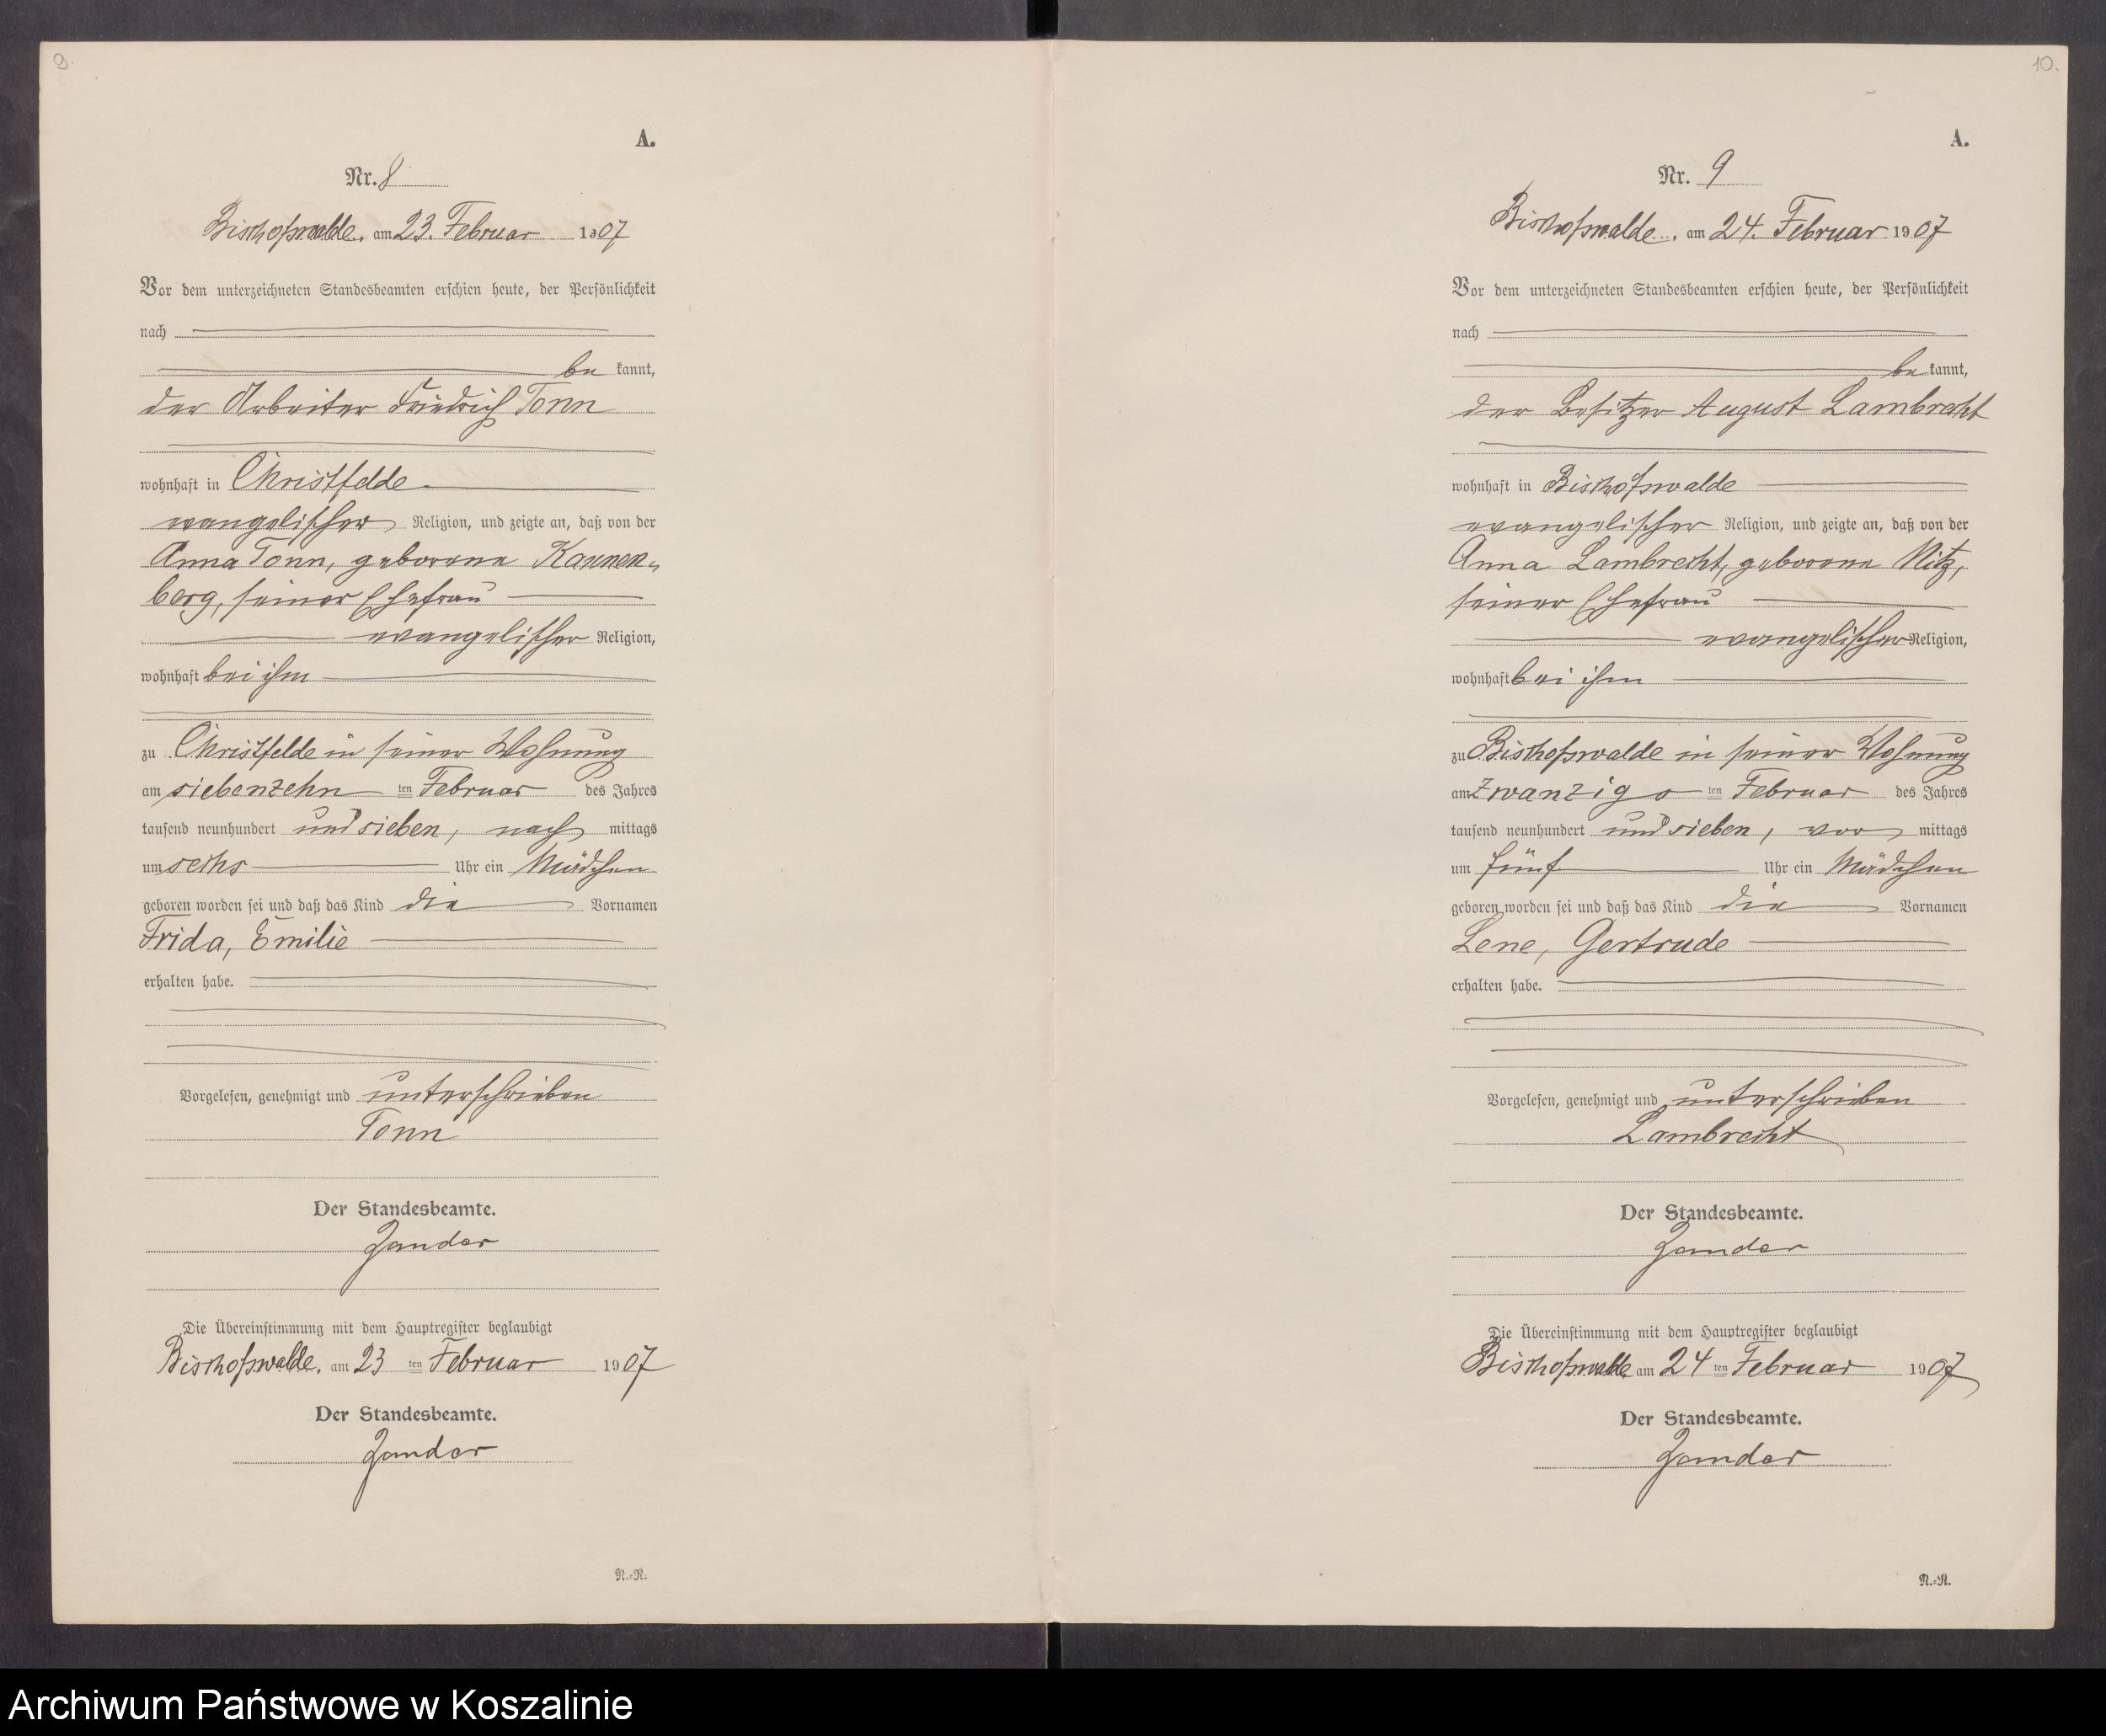 9.
A.
Nr. 8
Bischofswalde, am 23. Februar 1907
Vor dem unterzeichneten Standesbeamten erschien heute, der Persönlichkeit
nach
be kannt,
der Arbeiter Friedrich Tonn
wohnhaft in Christfelde
evangelischer Religion, und zeigte an, daß von der
Anna Tonn, geborene Kannen-
berg, seiner Ehefrau
evangelischer Religion,
wohnhaft bei ihm
zu Christfelde in seiner Wohnung
am siebenzehn ten Februar des Jahres
tausend neunhundert und sieben, nach mittags
um sechs Uhr ein Mädchen
geboren worden sei und daß das Kind die Vornamen
Frida, Emilie
erhalten habe.
Vorgelesen, genehmigt und unterschrieben
Tonn
Der Standesbeamte.
Zander
Die Übereinstimmung mit dem Hauptregister beglaubigt
Bischofswalde, am 23 ten Februar 1907
Der Standesbeamte.
Zander
N.-R.
10.
A.
Nr. 9
Bischofswalde, am 24. Februar 1907
Vor dem unterzeichneten Standesbeamten erschien heute, der Persönlichkeit
nach
be kannt,
der Besitzer August Lambrecht
wohnhaft in Bischofswalde
evangelischer Religion, und zeigte an, daß von der
Anna Lambrecht, geborene Nitz,
seiner Ehefrau
evangelischer Religion,
wohnhaft bei ihm
zu Bischofswalde in seiner Wohnung
am zwanzigs ten Februar des Jahres
tausend neunhundert und sieben, vor mittags
um fünf Uhr ein Mädchen
geboren worden sei und daß das Kind die Vornamen
Lene, Gertrude
erhalten habe.
Vorgelesen, genehmigt und unterschrieben
Lambrecht
Der Standesbeamte.
Zander
Die Übereinstimmung mit dem Hauptregister beglaubigt
Bischofswalde am 24 ten Februar 1907
Der Standesbeamte.
Zander
N.-R.
Archiwum Państwowe w Koszalinie